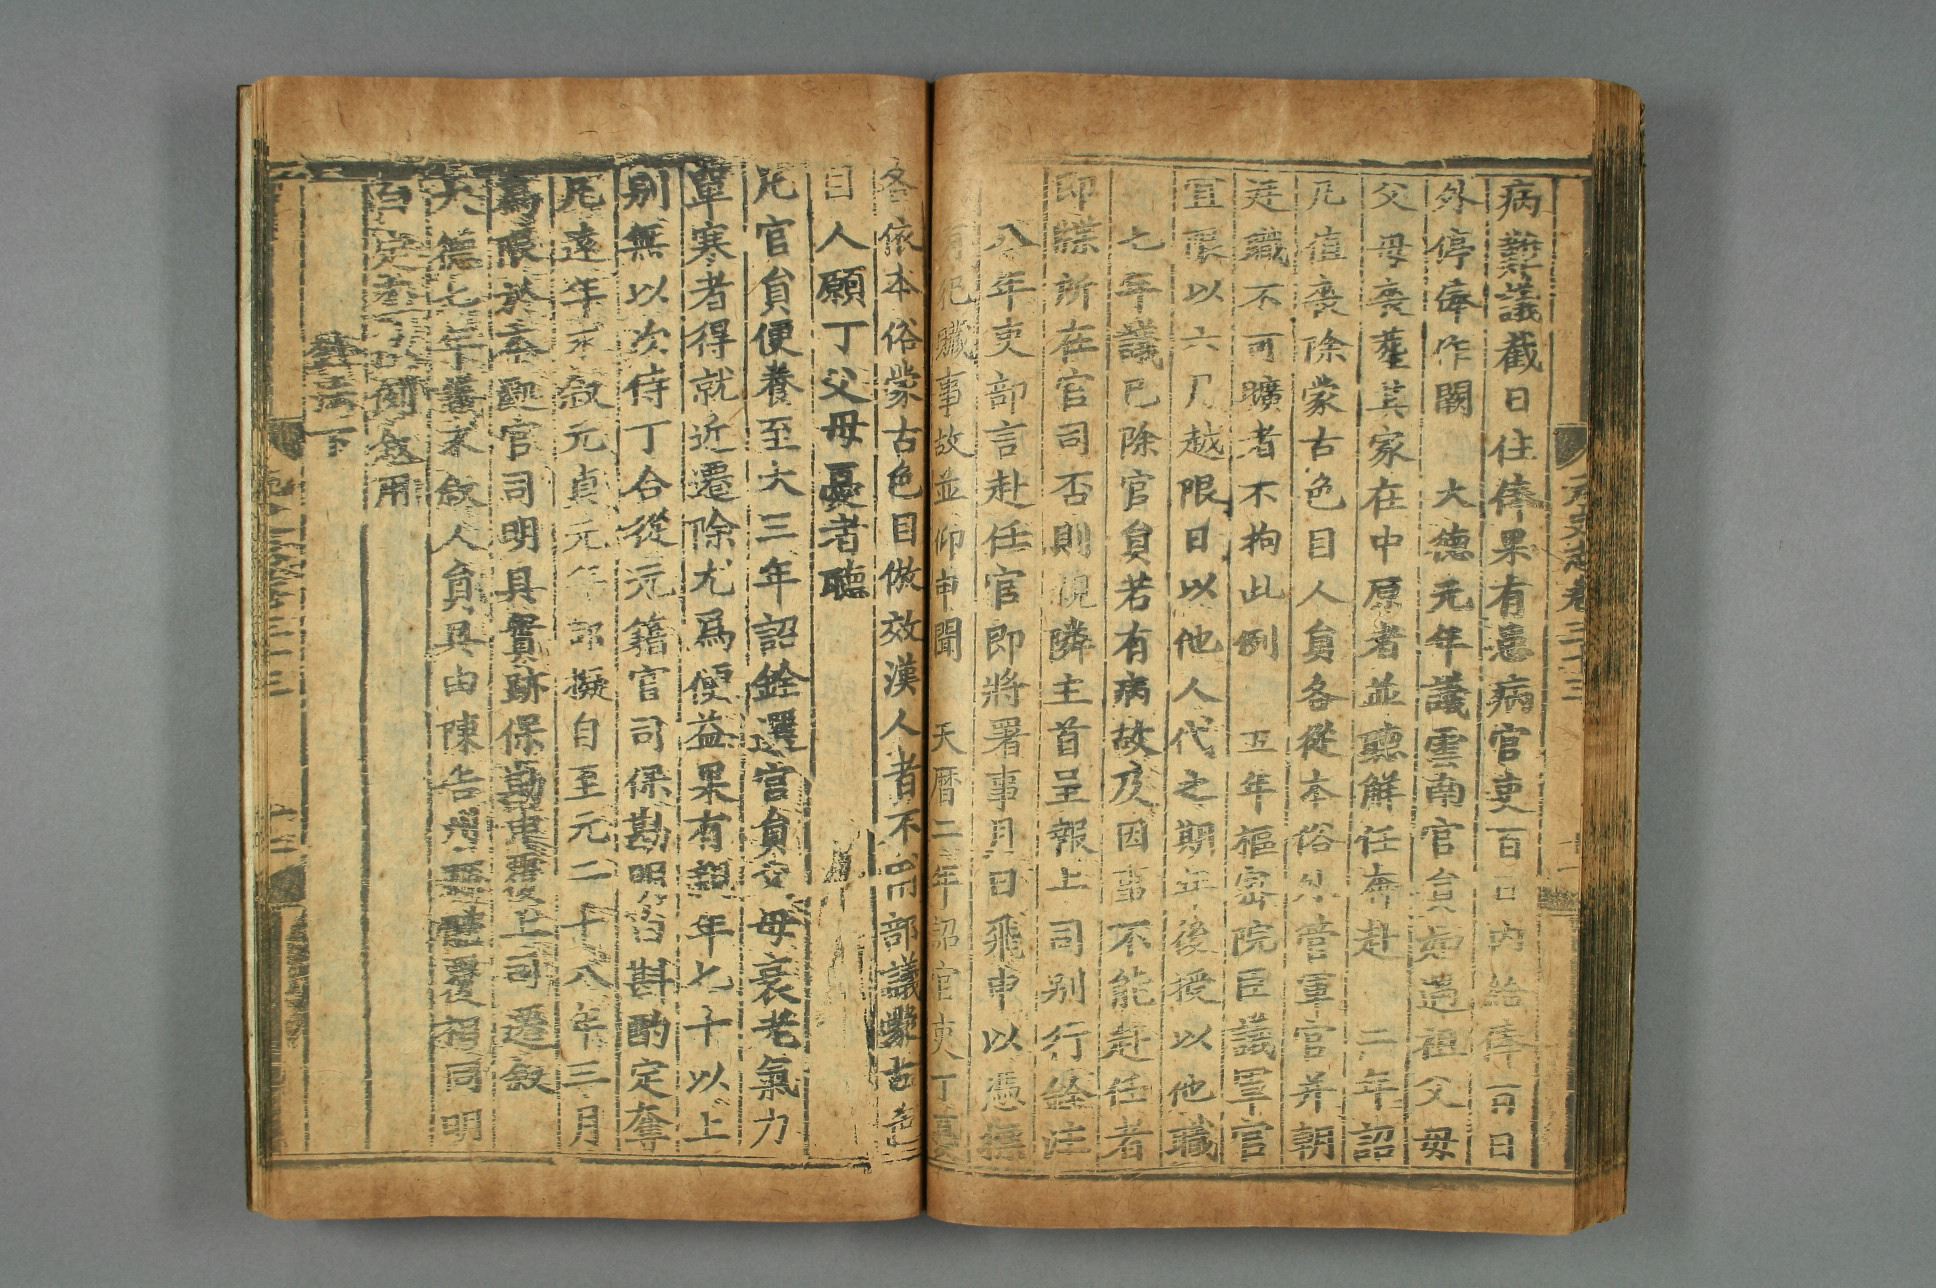 元史志卷三十三
病難議截日住俸果有患病官吏百日內給俸百日
外停俸作闕　大德元年議雲南官員如遇祖父母
父母喪葬其家在中原者並聽解任奔赴　二年詔
凡值喪除蒙古色目人員各從本俗外管軍官并朝
廷職不可曠者不拘此例　五年樞密院臣議軍官
宜限以六月越限日以他人代之期年後授以他職
七年議已除官員若有病故及因事不能赴任者
即牒所在官司否則親隣主首呈報上司別行銓注
八年吏部言赴任官即將署事月日飛申以憑標
有犯贓事故並仰申聞　天曆二年詔官吏丁憂
各依本俗蒙古色目倣效漢人者不用部議蒙古色
目人願丁父母憂者聽
凡官員便養至大三年詔銓選官員父母衰老氣力
單寒者得就近遷除尤爲便益果有親年七十以上
別無以次侍丁合從元籍官司保勘明白斟酌定奪
凡遠年未敘元貞元年部擬自至元二十八年三月
爲限於本處官司明具實跡保勘申覆上司遷敘
大德七年議未敘人員具由陳告州縣體覆相同明
白定奪依例敘用
銓法下